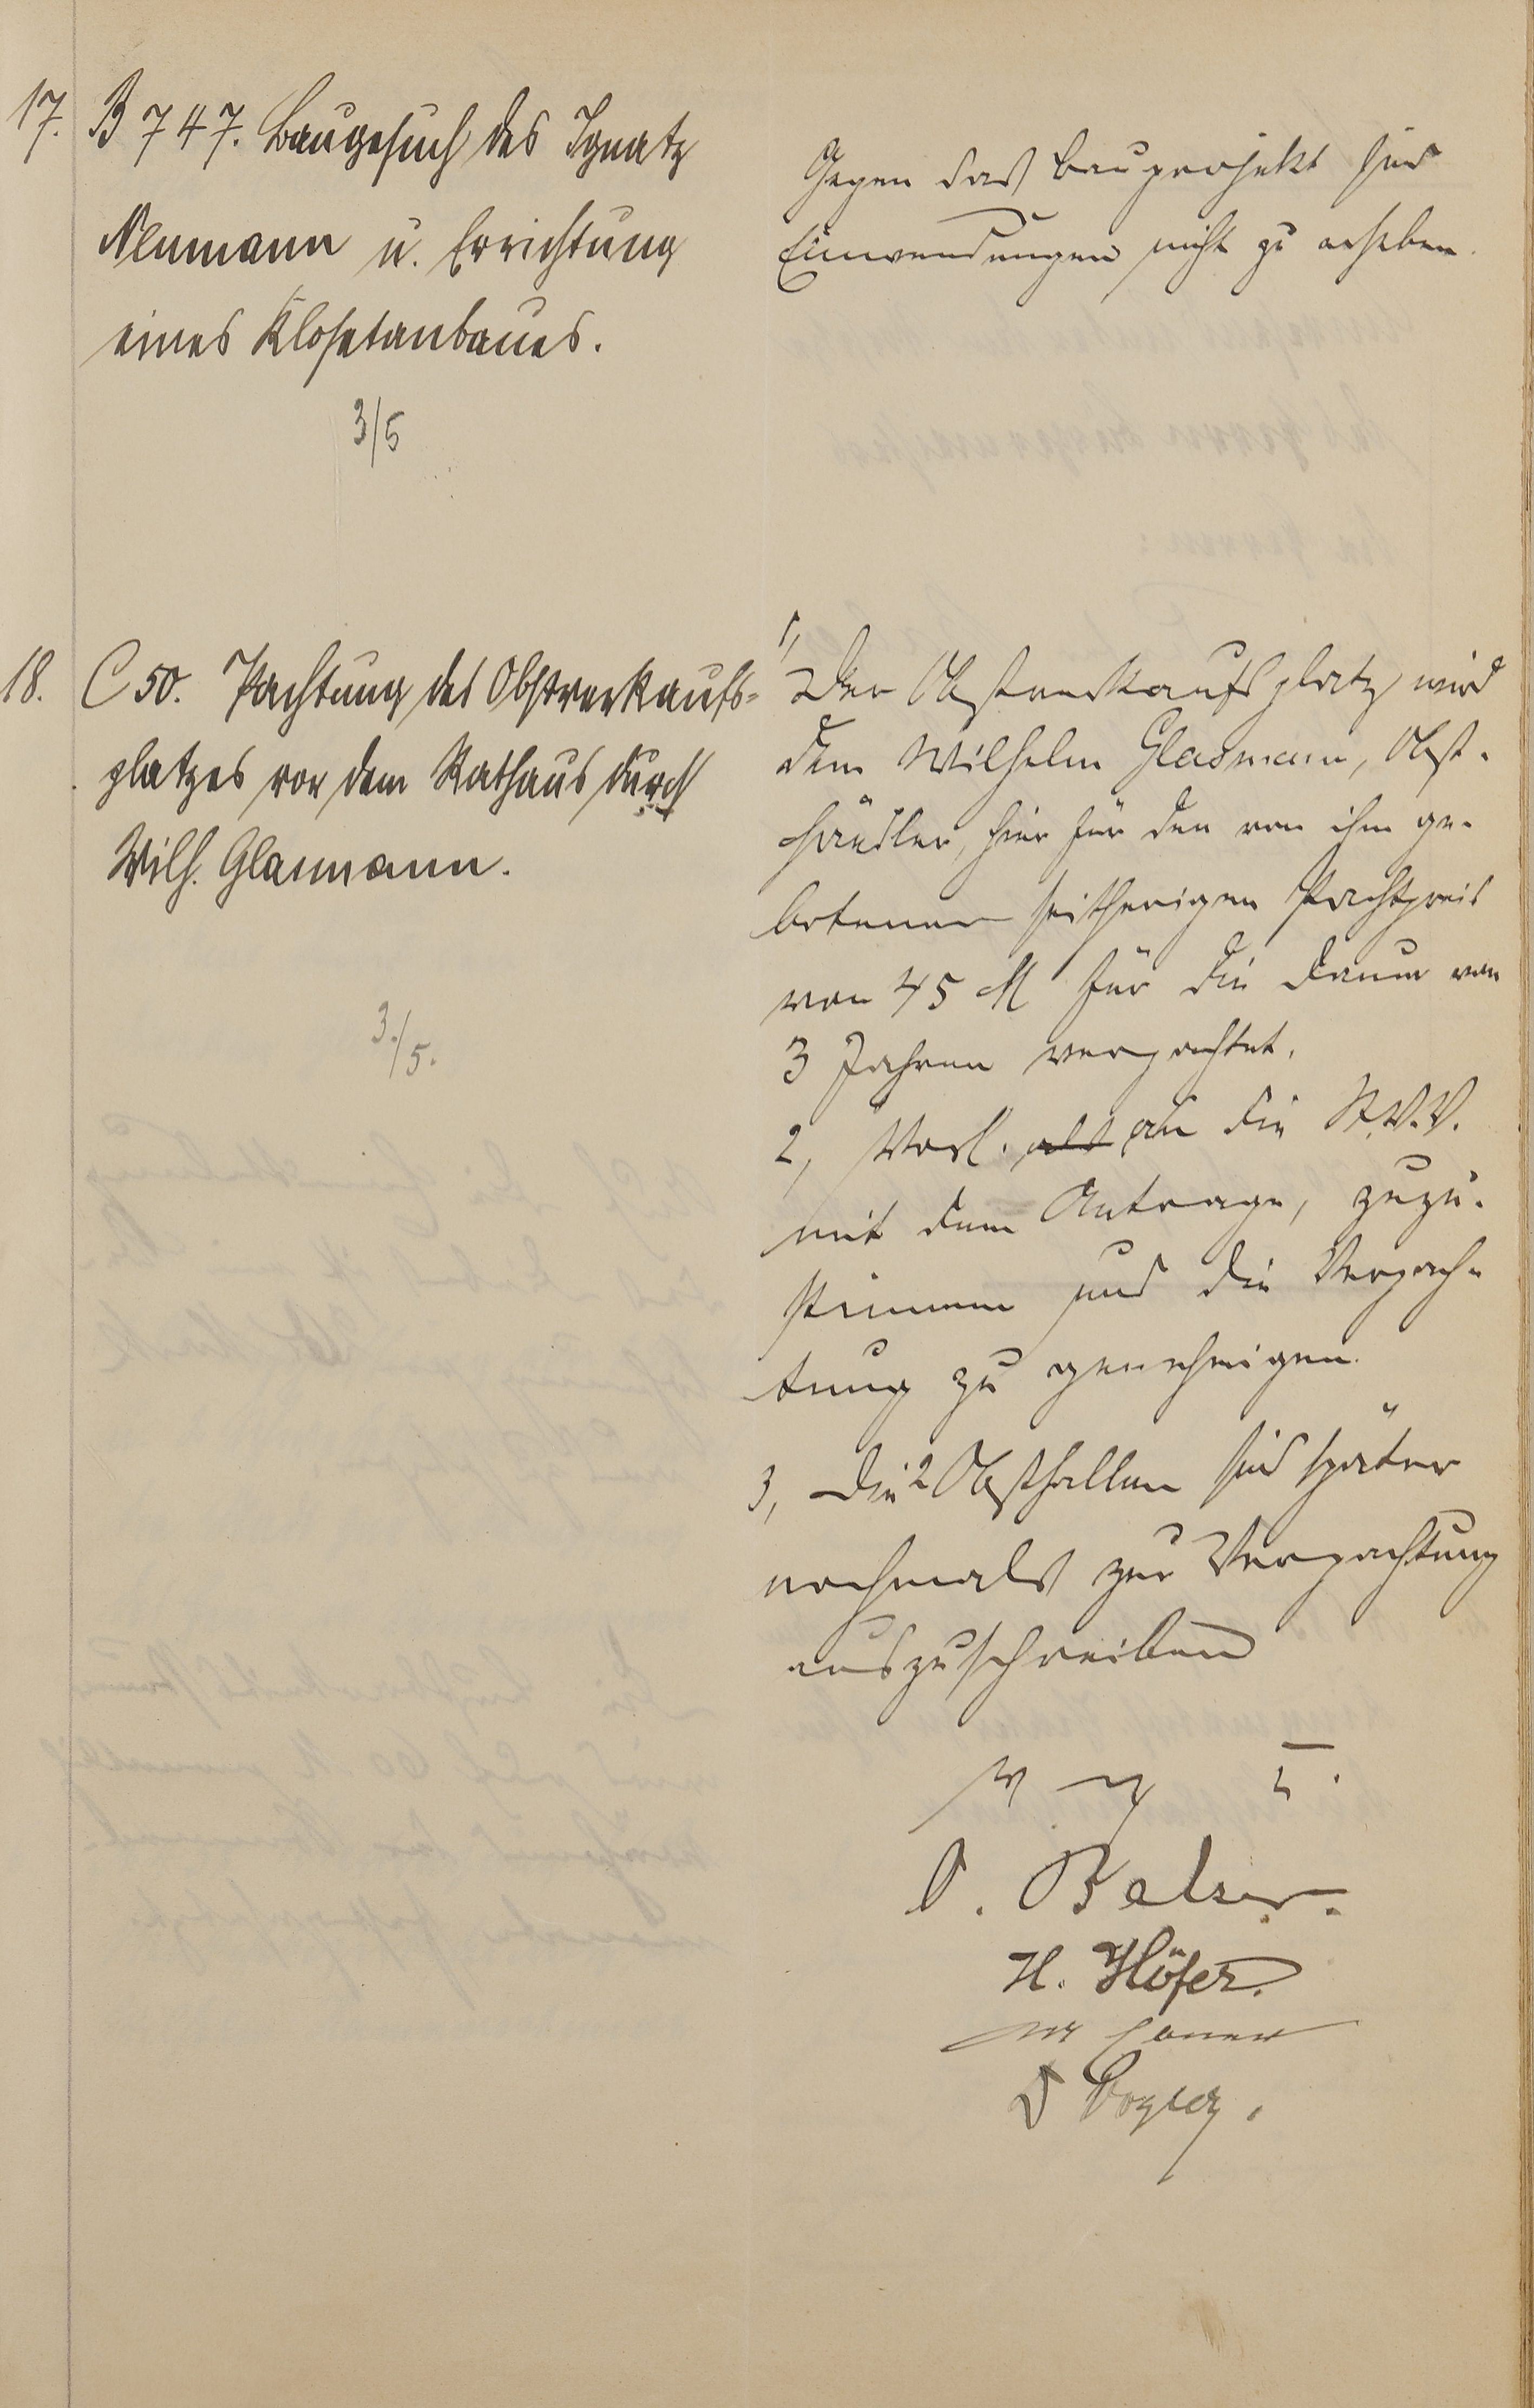 17. B 747. Baugesuch des Ignatz
Neumann u. Errichtung
eines Klosetanbaues.
3/5
Gegen das Bauprojekt sind
Einwendungen nicht zu erheben.
18. C 50. Pachtung des Obstverkaufs-
platzes vor dem Rathaus durch
Wilh. Glasmann.
3./5.
1, Der Obstverkaufsplatz wird
dem Wilhelm Glasmann, Obst-
händler, hier für den von ihm ge-
botenen seitherigen Pachtpreis
von 45 M für die Dauer von
3 Jahren verpachtet.
2, Vorl. als an die St.V.V.
mit dem Antrage, zuzu-
stimmen und die Verpach-
tung zu genehmigen.
3, Die 2 Obsthallen sind später
nochmals zur Verpachtung
auszuschreiben
O. Balser.
H. Höfer.